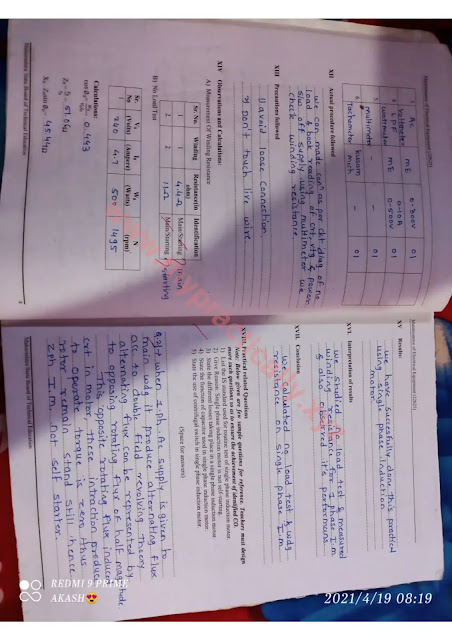 Maintenance of Electrical Equipment (22625)
1 Ac voltmeter mE 0-300V 01
2 mE 0-10A 01
wattmeter mE 0-500V 01
multimeter — — 01
Tachometer kusam meh — 01
XII Actual procedure followed
we can made conn as per ckt diag of no
load & took reading of crt, vtg & power.
S/w off supply using multimeter we
check winding resistance.
XIII Precautions followed
1) avoid loose connection.
2) Don't touch live wire
XIV Observations and Calculations:
A) Measurement Of Winding Resistance
Sr.No. Winding Resistance(in ohm) Identification
1 1 4.4Ω Main/Starting
2 11Ω Main/Starting
B) No Load Test
Sr. No V₀ (Volts) I₀ (Ampere) W₀ (Watts) N (rpm)
1 240 4.7 500 1495
Calculations:
= 0.443
= 51.6Ω
= 45.44Ω
Maharashtra State Board of Technical Education
Maintenance of Electrical Equipment (22625)
XV Results:
we have successfully done this practical
using single phase induction
motor
XVI Interpretation of results
we studied no load test & measured
winding resistance for 1 phase I.m
& also observed it's performans.
XVII Conclusion
we calculated no load test & wdg
resistance on single phase I.m.
XVIII Practical related Questions
Note: Below given are few sample questions for reference. Teachers must design
more such questions so as to ensure the achievement of identified CO.
1) List the IS standard used for routine test of single phase induction motor.
2) Give Reason: Single phase induction motor is not self-starting.
3) State the different losses taking place in a single phase induction motor.
4) State the function of capacitor used in single phase induction motor.
5) State the use of centrifugal switch in single phase induction motor.
(Space for answers)
Q.2→ when 1 ph. Ac supply is given to
main wdg it produce alternating flux
acc. to double field revolving Theory
alternating flux can be represented by
to opposing rotating flux of half magnitude.
This opposite rotating flux induce
crt in motor, these intraction produce
to operate torque is zero thus
rotor remain stand still hence
1 ph I.m. not self starter.
Maharashtra State Board of Technical Education
REDMI 9 PRIME
AKASH😍
2021/4/19 08:19